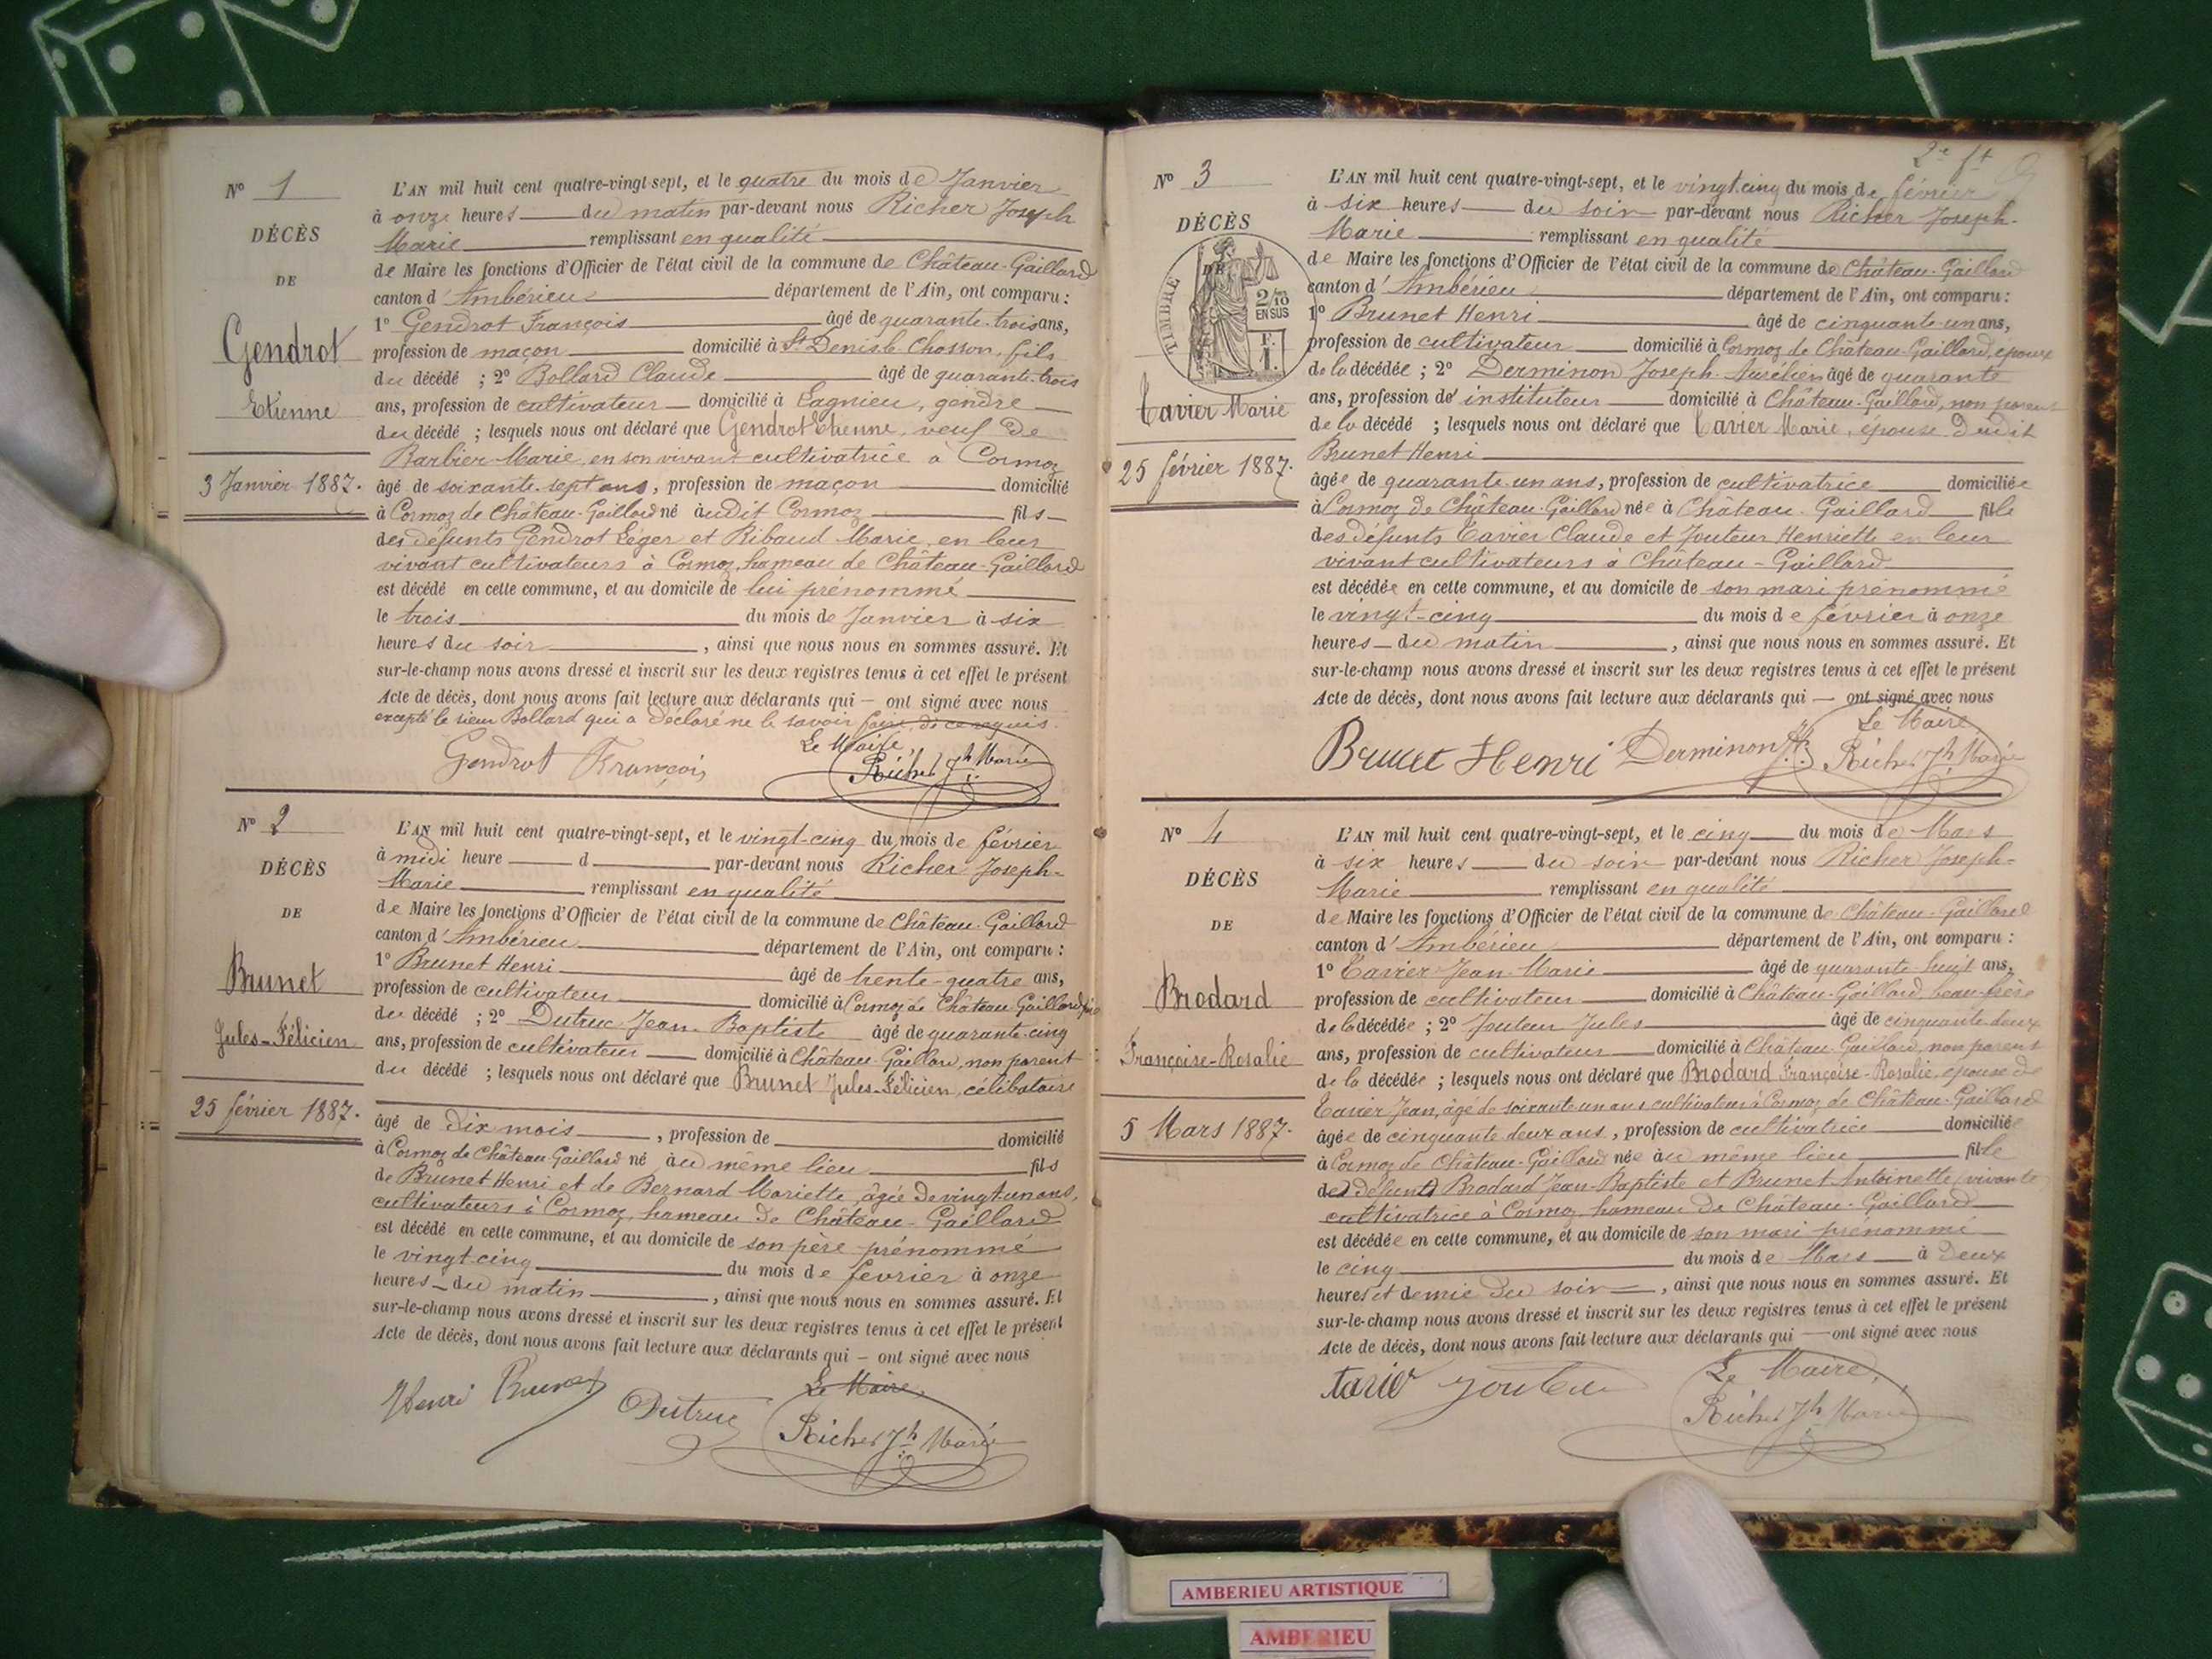 N° 1
DÉCÈS
DE
Gendrot
Etienne
3 Janvier 1887.
L'AN mil huit cent quatre-vingt-sept, et le quatre du mois de Janvier
à onze heures du matin par-devant nous Richer Joseph
Marie remplissant en qualité
de Maire les fonctions d'Officier de l'état civil de la commune de Château-Gaillard
canton d'Ambérieu département de l'Ain, ont comparu :
1° Gendrot François âgé de quarante-trois ans,
profession de maçon domicilié à St Denis-le-Chosson, fils
du décédé ; 2° Bollard Claude âgé de quarante-trois
ans, profession de cultivateur domicilié à Lagnieu, gendre
du décédé ; lesquels nous ont déclaré que Gendrot Etienne, veuf de
Barbier Marie, en son vivant cultivatrice à Cormoz
âgé de soixante-sept ans, profession de maçon domicilié
à Cormoz de Château-Gaillard né audit Cormoz fils
des défunts Gendrot Léger et Ribaud Marie, en leur
vivant cultivateurs à Cormoz, hameau de Château-Gaillard
est décédé en cette commune, et au domicile de lui prénommé
le trois du mois de Janvier à six
heures du soir, ainsi que nous nous en sommes assuré. Et
sur-le-champ nous avons dressé et inscrit sur les deux registres tenus à cet effet le présent
Acte de décès, dont nous avons fait lecture aux déclarants qui — ont signé avec nous
excepté le sieur Bollard qui a déclaré ne le savoir faire, de ce requis.
Gendrot François
Le Maire,
Richer Jh Marie
N° 2
DÉCÈS
DE
Brunet
Jules-Félicien
25 février 1887.
L'AN mil huit cent quatre-vingt-sept, et le vingt-cinq du mois de février
à midi heure d par-devant nous Richer Joseph-
Marie remplissant en qualité
de Maire les fonctions d'Officier de l'état civil de la commune de Château-Gaillard
canton d'Ambérieu département de l'Ain, ont comparu :
1° Brunet Henri âgé de trente-quatre ans,
profession de cultivateur domicilié à Cormoz de Château-Gaillard, père
du décédé ; 2° Dutruc Jean-Baptiste âgé de quarante-cinq
ans, profession de cultivateur domicilié à Château-Gaillard, non parent
du décédé ; lesquels nous ont déclaré que Brunet Jules-Félicien, célibataire
âgé de dix mois, profession de domicilié
à Cormoz de Château-Gaillard né au même lieu fils
de Brunet Henri et de Bernard Mariette, âgée de vingt-un ans,
cultivateurs à Cormoz, hameau de Château-Gaillard
est décédé en cette commune, et au domicile de son père prénommé
le vingt-cinq du mois de février à onze
heures du matin, ainsi que nous nous en sommes assuré. Et
sur-le-champ nous avons dressé et inscrit sur les deux registres tenus à cet effet le présent
Acte de décès, dont nous avons fait lecture aux déclarants qui — ont signé avec nous
Henri Brunet
Dutruc
Le Maire,
Richer Jh Marie
N° 3
DÉCÈS
DE
TIMBRE
2/10
EN SUS
F.
1.
Tavier Marie
25 février 1887.
L'AN mil huit cent quatre-vingt-sept, et le vingt-cinq du mois de février
à six heures du soir par-devant nous Richer Joseph-
Marie remplissant en qualité
de Maire les fonctions d'Officier de l'état civil de la commune de Château-Gaillard
canton d'Ambérieu département de l'Ain, ont comparu :
1° Brunet Henri âgé de cinquante-un ans,
profession de cultivateur domicilié à Cormoz de Château-Gaillard, époux
de la décédée ; 2° Derminon Joseph-Aurélien âgé de quarante
ans, profession de instituteur domicilié à Château-Gaillard, non parent
de la décédé ; lesquels nous ont déclaré que Tavier Marie, épouse dudit
Brunet Henri
âgée de quarante-un ans, profession de cultivatrice domiciliée
à Cormoz de Château-Gaillard née à Château-Gaillard fille
des défunts Tavier Claude et Jouteur Henriette en leur
vivant cultivateurs à Château-Gaillard
est décédée en cette commune, et au domicile de son mari prénommé
le vingt-cinq du mois de février à onze
heures du matin, ainsi que nous nous en sommes assuré. Et
sur-le-champ nous avons dressé et inscrit sur les deux registres tenus à cet effet le présent
Acte de décès, dont nous avons fait lecture aux déclarants qui — ont signé avec nous
Brunet Henri
Derminon
Le Maire
Richer Jh Marie
N° 4
DÉCÈS
DE
Brodard
Françoise-Rosalie
5 Mars 1887.
L'AN mil huit cent quatre-vingt-sept, et le cinq du mois de Mars
à six heures du soir par-devant nous Richer Joseph-
Marie remplissant en qualité
de Maire les fonctions d'Officier de l'état civil de la commune de Château-Gaillard
canton d'Ambérieu département de l'Ain, ont comparu :
1° Tavier Jean-Marie âgé de quarante-huit ans,
profession de cultivateur domicilié à Château-Gaillard, beau-frère
de la décédée ; 2° Jouteur Jules âgé de cinquante-deux
ans, profession de cultivateur domicilié à Château-Gaillard, non parent
de la décédée ; lesquels nous ont déclaré que Brodard Françoise-Rosalie, épouse de
Tavier Jean, âgé de soixante-un ans cultivateur à Cormoz de Château-Gaillard
âgée de cinquante-deux ans, profession de cultivatrice domiciliée
à Cormoz de Château-Gaillard née au même lieu fille
des défunts Brodard Jean-Baptiste et Brunet Antoinette, vivante
cultivatrice à Cormoz, hameau de Château-Gaillard
est décédée en cette commune, et au domicile de son mari prénommé
le cinq du mois de Mars à deux
heures et demie du soir, ainsi que nous nous en sommes assuré. Et
sur-le-champ nous avons dressé et inscrit sur les deux registres tenus à cet effet le présent
Acte de décès, dont nous avons fait lecture aux déclarants qui — ont signé avec nous
Le Maire,
Richer Jh Marie
AMBERIEU ARTISTIQUE
AMBERIEU